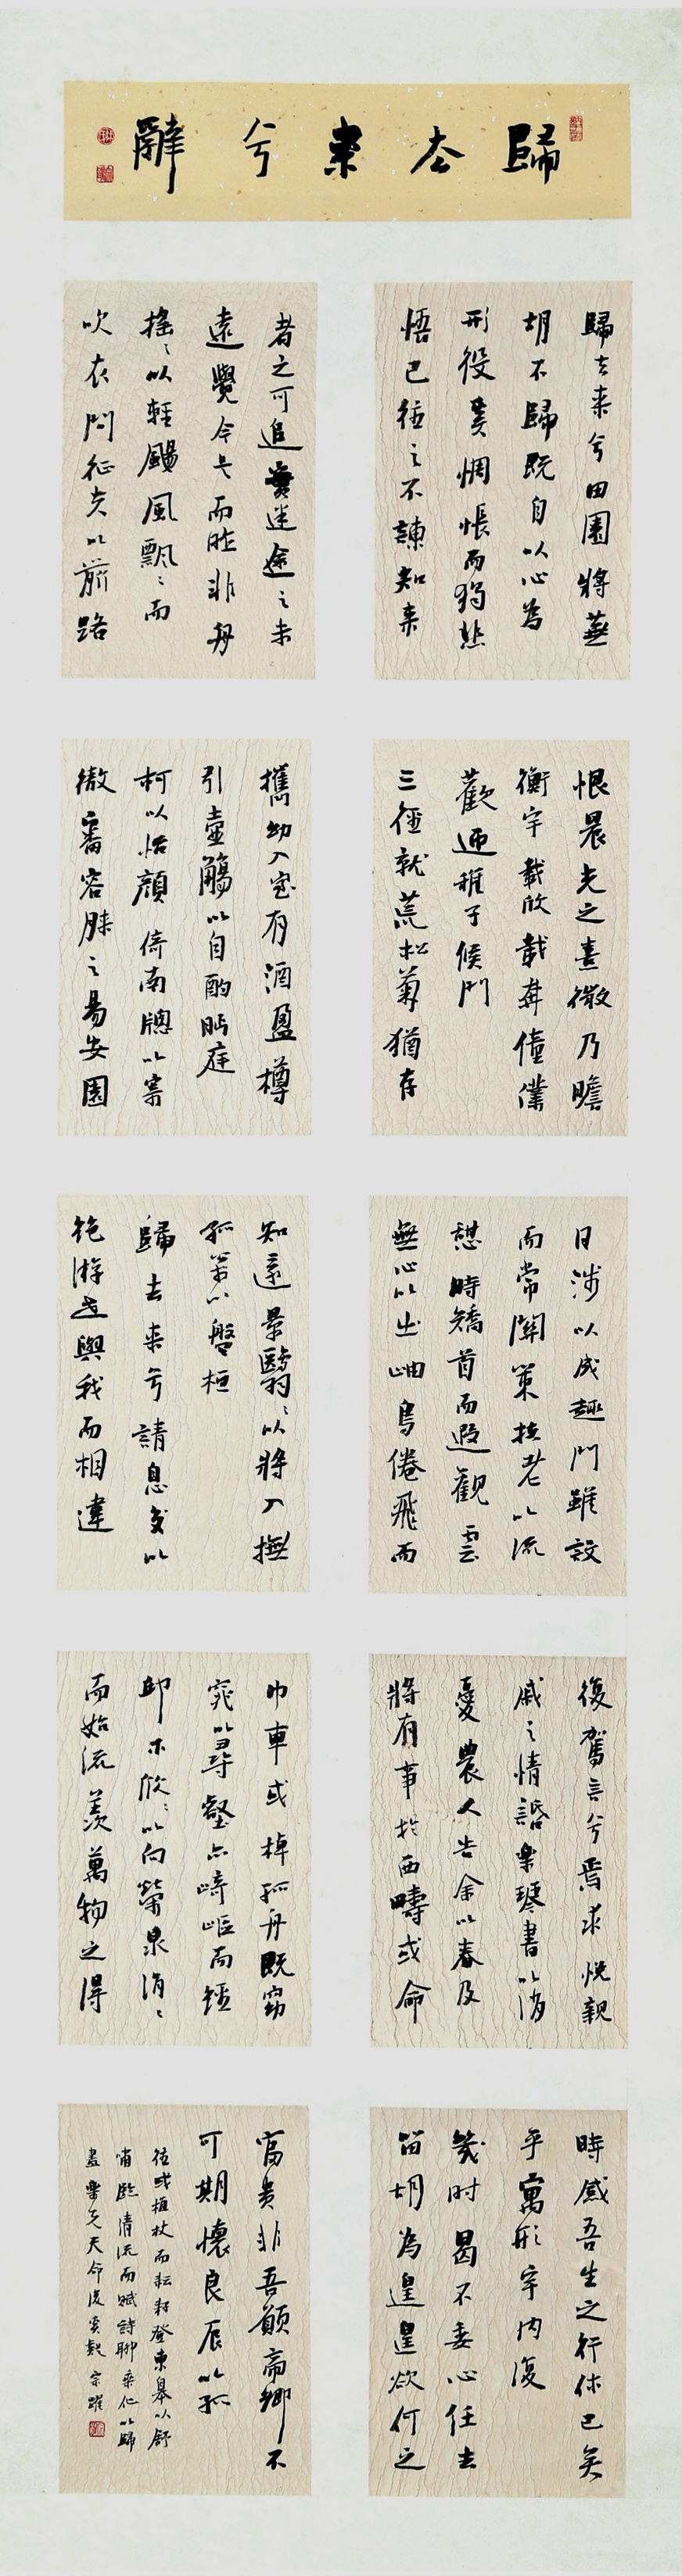 歸去来兮辭
歸去来兮田園將蕪
胡不歸既自以心為
形役奚惆悵而獨悲
悟已往之不諫知来
者之可追實迷途之未
遠覺今是而昨非舟
搖〻以輕颺風飄〻而
吹衣問征夫以前路
恨晨光之熹微乃瞻
衡宇載欣載奔僮僕
歡迎稚子候門
三徑就荒松菊猶存
攜幼入室有酒盈樽
引壺觴以自酌眄庭
柯以怡顏倚南牕以寄
傲審容膝之易安園
日涉以成趣門雖設
而常關策扶老以流
憩時矯首而遐觀雲
無心以出岫鳥倦飛而
知還景翳〻以將入撫
孤以盤桓
歸去来兮請息交以
絕游世與我而相違
復駕言兮焉求悅親
戚之情話樂琴書以消
憂農人告余以春及
將有事於西疇或命
巾車或棹孤舟既窈
窕以尋壑亦崎嶇而經
邱木欣〻以向榮泉涓〻
而始流羨萬物之得
時感吾生之行休已矣
乎寓形宇內復
幾时曷不委心任去
留胡為遑遑欲何之
富貴非吾願帝鄉不
可期懷良辰以孤
往或植杖而耘耔登東皋以舒
嘯臨清流而賦詩聊乘化以歸
盡樂夫天命復奚疑 宗躍